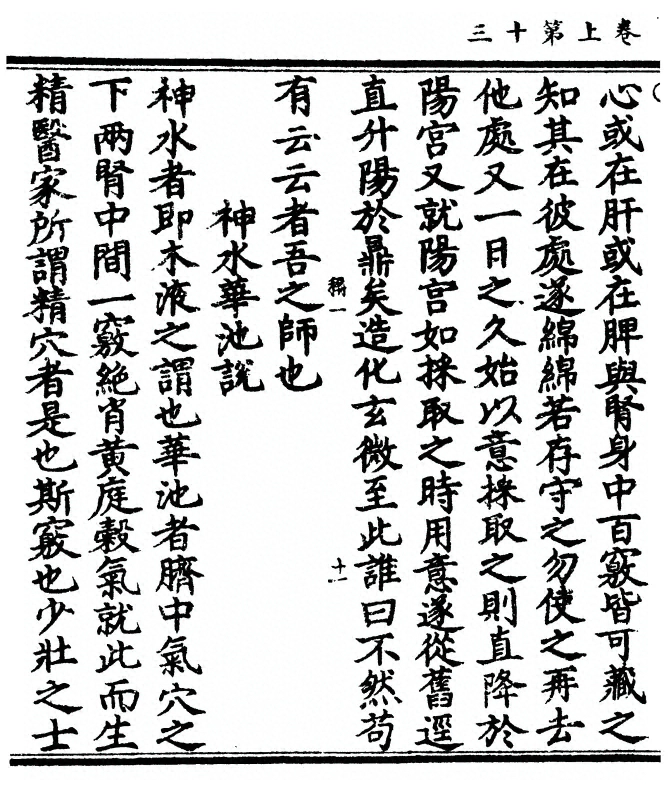 三十第上卷
心或在肝或在脾與腎身中百竅皆可藏之
知其在彼處遂綿綿若存守之勿使之再去
他處又一日之久始以意採取之則直降於
陽宮又就陽宮如採取之時用意遂從舊逕
直升陽於鼎矣造化玄微至此誰曰不然苟
稱一
十一
有云云者吾之師也
神水華池說
神水者即木液之謂也華池者臍中氣穴之
下兩腎中間一竅絕肖黃庭穀氣就此而生
精醫家所謂精穴者是也斯竅也少壯之士